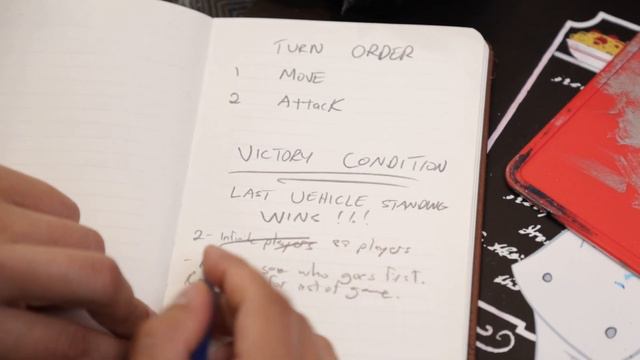 TURN ORDER
1 MOVE
2 AttacK
VICTORY CONDITION
LAST VEHICLE STANDING
WINS !!!
2- players 88 players
see who goes first.
for rest of game.